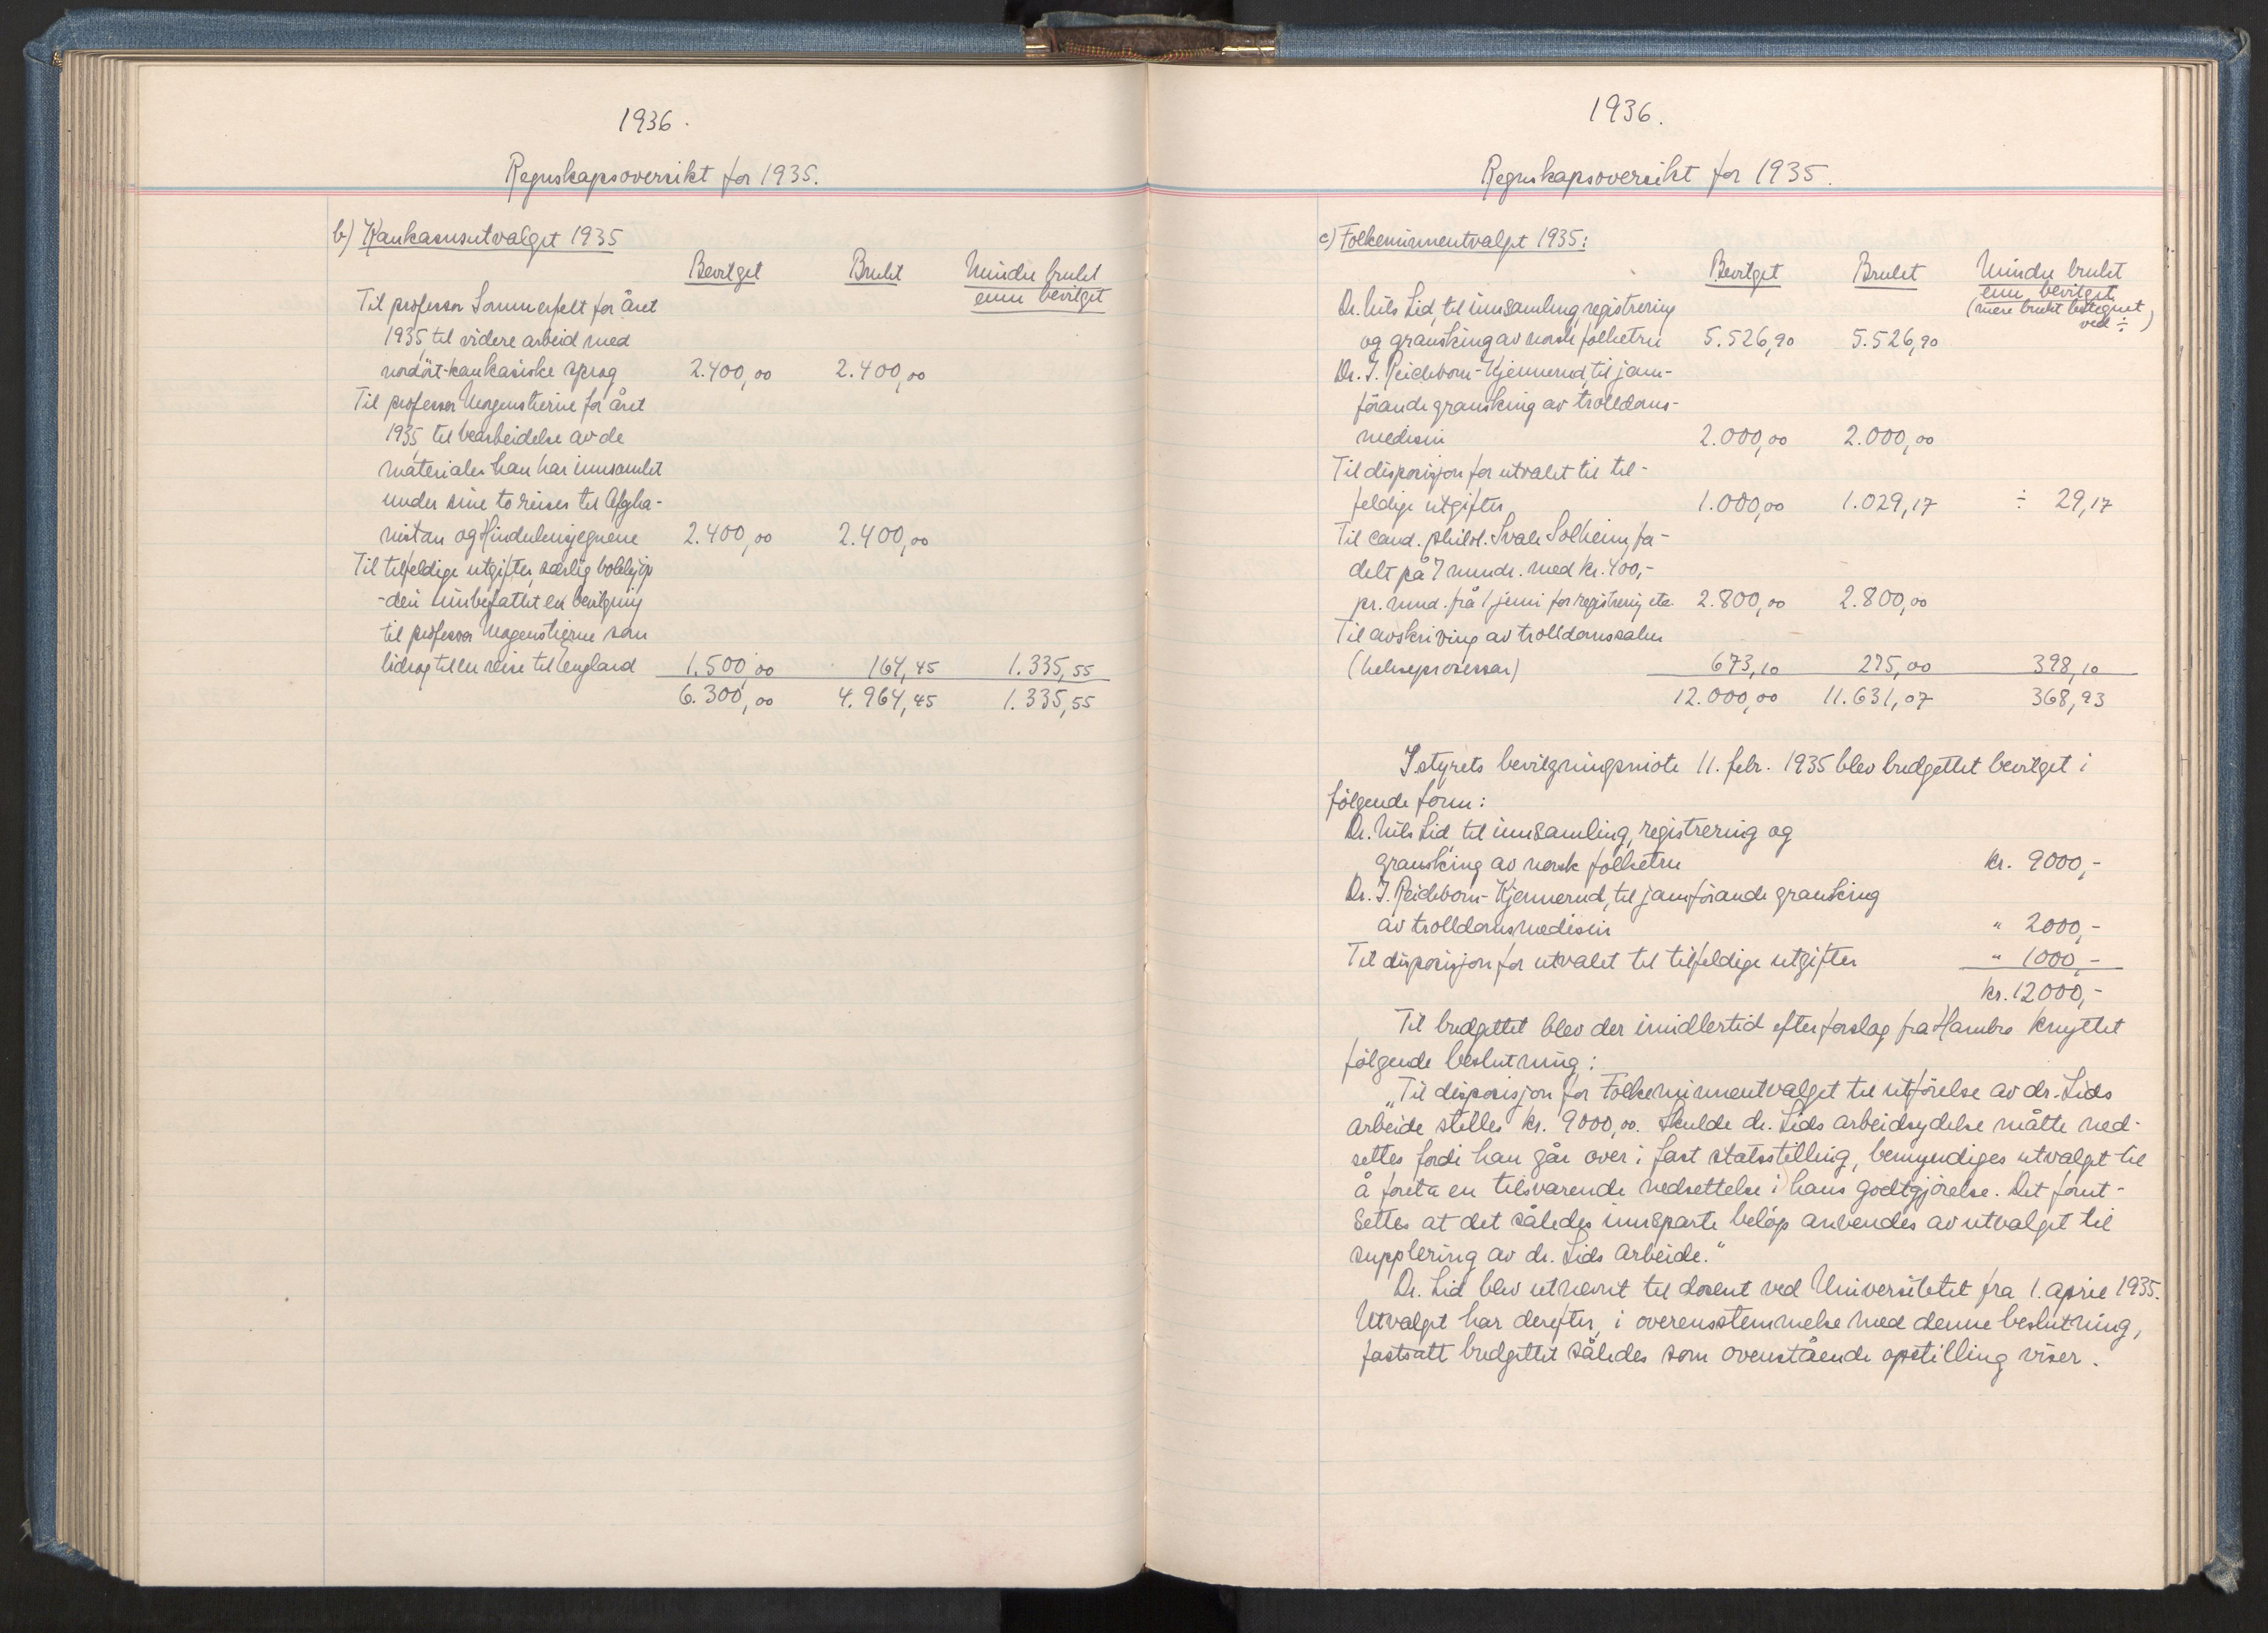 1936.
Regnskapsoversikt for 1935.
b) Kaukasusutvalget 1935
Bevilget Brukt Mindre brukt
enn bevilget
Til professor Sommerfelt for året
1935, til videre arbeid med
nordöst-kaukasiske sprog 2.400,00 2.400,00
Til professor Morgenstierne for året
1935, til bearbeidelse av de
materialer han har innsamlet
under sine to reiser til Afgha-
nistan og Hindukusjegnene 2.400,00 2.400,00
Til tilfeldige utgifter, særlig bokkjöp
- deri innbefattet en bevilgning
til professor Morgenstierne som
bidrag til en reise til England 1.500,00 164,45 1.335,55
6.300,00 4.964,45 1.335,55
1936.
Regnskapsoversikt for 1935.
c) Folkeminneutvalget 1935:
Bevilget Brukt Mindre brukt
enn bevilget
(mere brukt betegnet
ved ÷ )
Dr. Nils Lid, til innsamling, registrering
og gransking av norsk folketru 5.526,90 5.526,90
Dr. I. Reichborn-Kjennerud, til jam-
förande gransking av trolldoms-
medisin 2.000,00 2.000,00
Til disposisjon for utvalet til til-
feldige utgifter 1.000,00 1.029,17 ÷ 29,17
Til cand. philol. Svale Solheim, fa-
delt på 7 mndr. med kr. 400,-
pr. mnd. frå 1 juni for registrering etc. 2.800,00 2.800,00
Til avskriving av trolldomssaker
(hekseprosessar) 673,10 275,00 398,10
12.000,00 11.631,07 368,93
I styrets bevilgningsmöte 11. febr. 1935 blev budgettet bevilget i
fölgende form:
Dr. Nils Lid, til innsamling, registrering og
gransking av norsk folketru kr. 9000,-
Dr. I. Reichborn-Kjennerud, til jamförande gransking
av trolldomsmedisin " 2000,-
Til disposisjon for utvalet til tilfeldige utgifter " 1000,-
kr. 12000,-
Til budgettet blev der imidlertid efter forslag fra Hambro knyttet
fölgende beslutning:
„Til disposisjon for Folkeminneutvalget til utförelse av dr. Lids
arbeide stilles kr. 9000,00. Skulde dr. Lids arbeidsydelse måtte ned-
settes fordi han går over i fast statsstilling, bemyndiges utvalget til
å foreta en tilsvarende nedsettelse i hans godtgjörelse. Det forut-
settes at det således innsparte belöp anvendes av utvalget til
supplering av dr. Lids arbeide."
Dr. Lid blev utnevnt til dosent ved Universitetet fra 1. april 1935.
Utvalget har derefter, i overensstemmelse med denne beslutning,
fastsatt budgettet således som ovenstående opstilling viser.